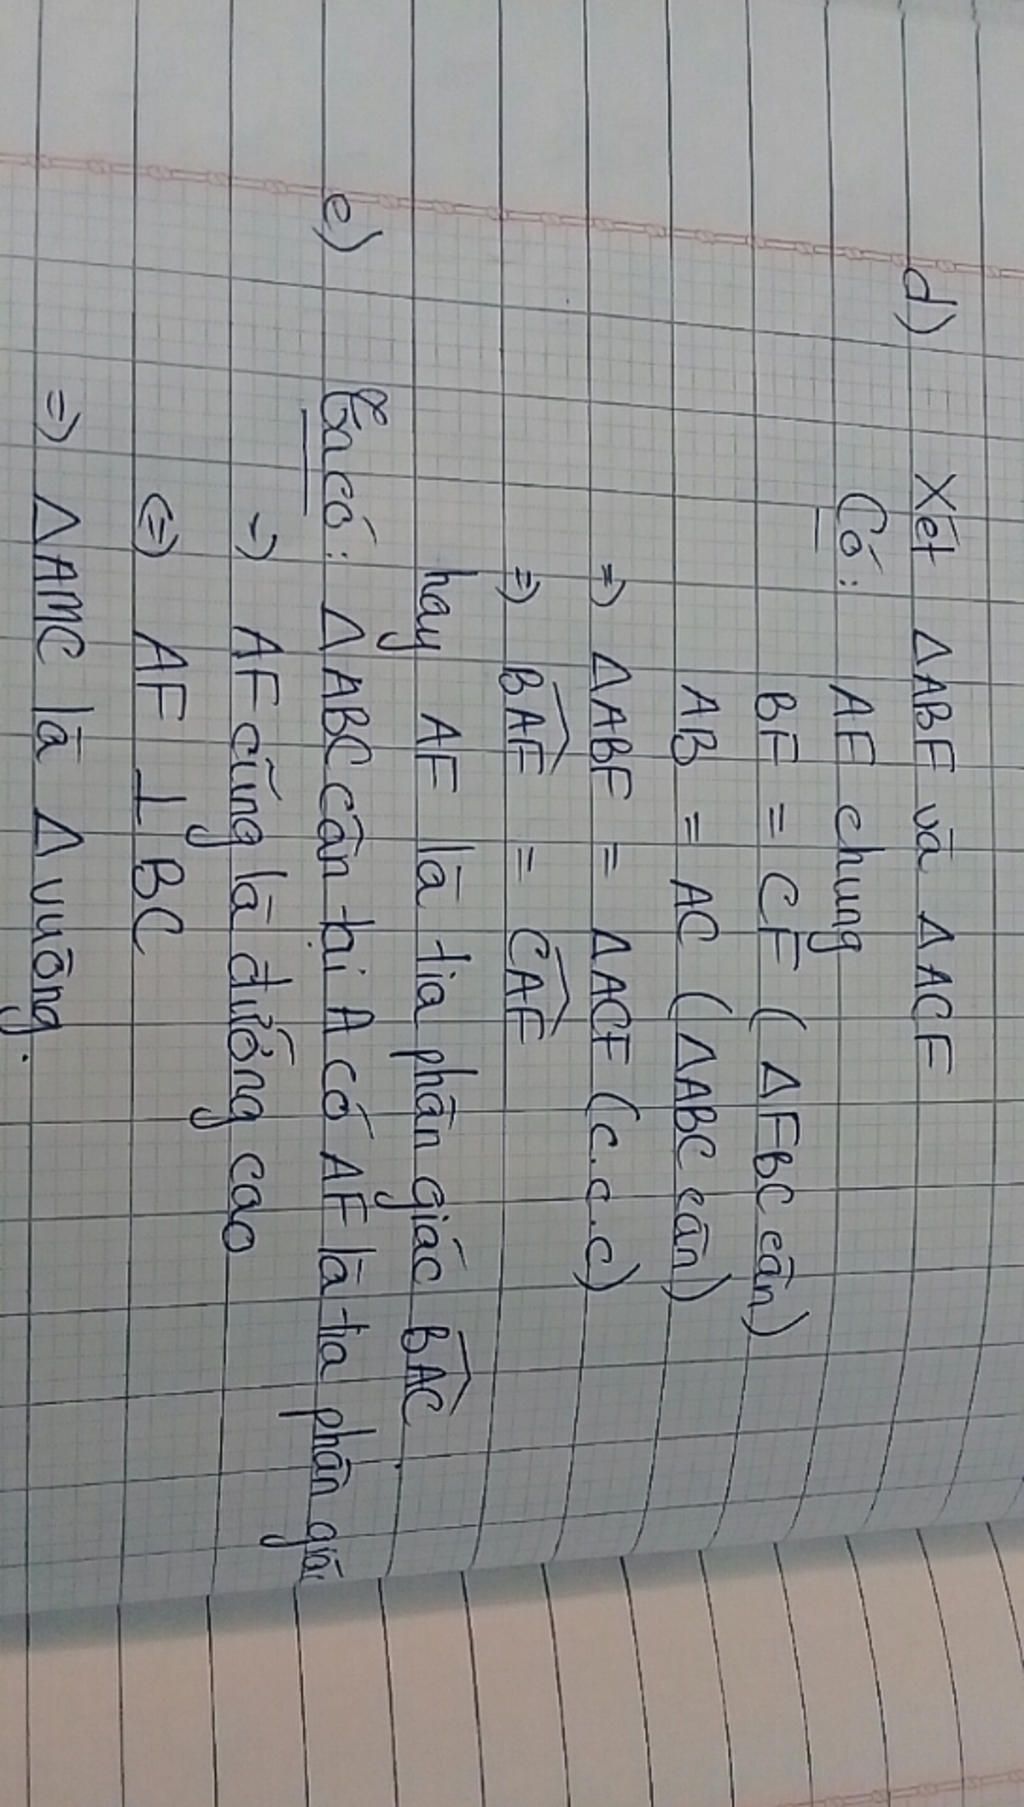 d) Xét ΔABF và ΔACF
Có: AF chung
BF = CF (ΔFBC cân)
AB = AC (ΔABC cân)
=> ΔABF = ΔACF (c.c.c)
=> \widehat{BAF} = \widehat{CAF}
hay AF là tia phân giác \widehat{BAC}.
e) Ta có: ΔABC cân tại A có AF là tia phân giác
=> AF cũng là đường cao
<=> AF ⊥ BC
=> ΔAMC là Δ vuông.